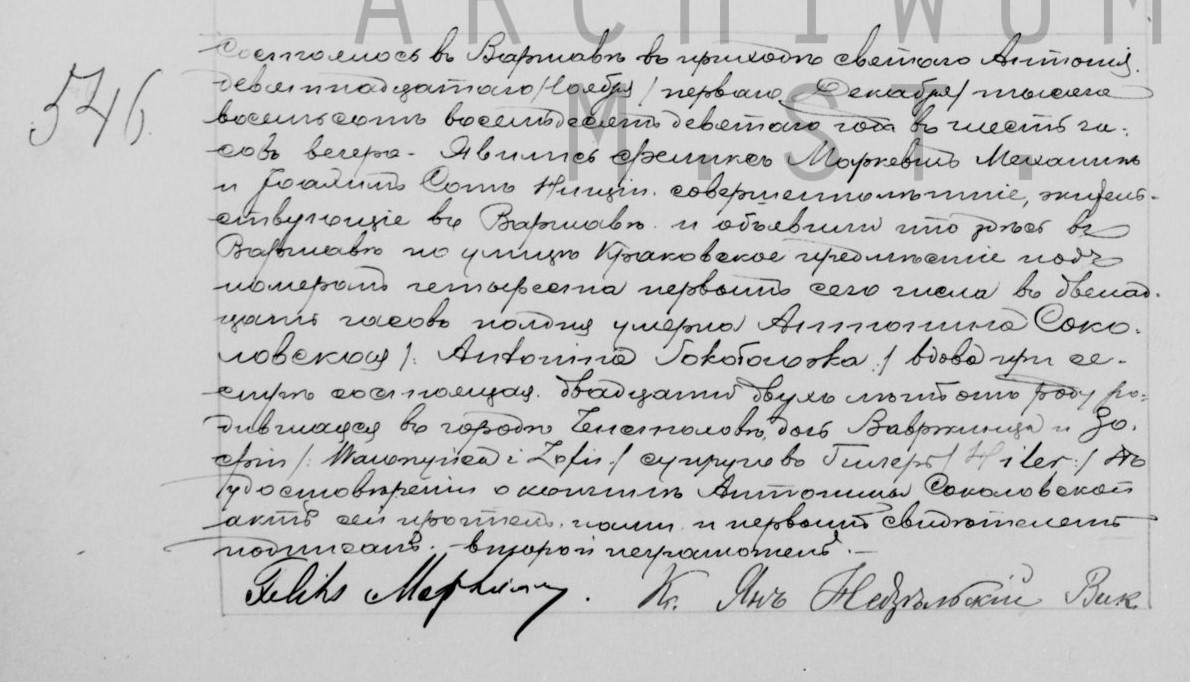 ARCHIWUM
M. ST.
546.
Состоялось въ Варшавѣ въ приходѣ святаго Антонія.
девятнадцатаго /Ноября/ перваго Декабря/ тысяча
восемьсотъ восемьдесятъ девятаго года въ шесть ча-
совъ вечера. Явились Феликсъ Маркевичъ Механикъ
и совершеннолѣтніе, житель-
ствующіе въ Варшавѣ и объявили что здѣсь въ
Варшавѣ по улицѣ Краковское предмѣстіе подъ
номеромъ четыреста первымъ сего числа въ двенад-
цать часовъ полдня умерла Антонина Соко-
ловская /: Antonina Sokołowska :/ вдова при се-
стрѣ состоящая. двадцати двухъ лѣтъ отъ роду ро-
дившаяся въ городѣ дочь Вавржинца и Зо-
фіи /: Wawrzyńca i Zofii :/ супруговъ Гилеръ /: Hiler :/ По
удостовѣреніи о кончинѣ Антонины Соколовской
актъ сей прочтенъ, нами и первымъ свидѣтелемъ
подписанъ. - второй неграмотенъ. —
Feliks Кс. Янъ Недзѣльскій Вик